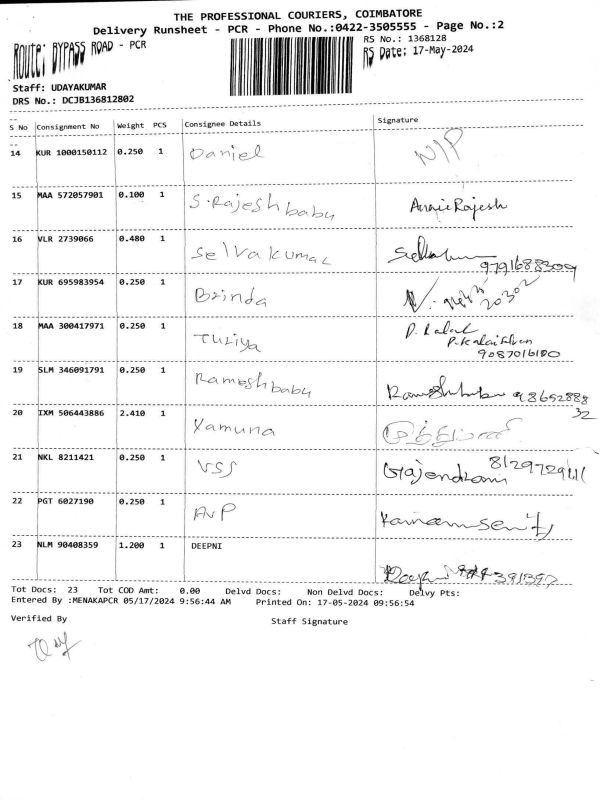 THE PROFESSIONAL COURIERS, COIMBATORE
Delivery Runsheet - PCR - Phone No.:0422-3505555 - Page No.:2
Route: BYPASS ROAD - PCR
RS No.: 1368128
RS Date: 17-May-2024
Staff: UDAYAKUMAR
DRS No.: DCJB136812802
S No Consignment No Weight PCS Consignee Details Signature
14 KUR 1000150112 0.250 1 Daniel N/P
15 MAA 572057901 0.100 1 S.Rajeshbabu Annie Rajesh
16 VLR 2739066 0.480 1 Selvakumar
9791688309
17 KUR 695983954 0.250 1 Brinda
18 MAA 300417971 0.250 1 Turiya
9087016100
19 SLM 346091791 0.250 1 Rameshbabu 98652888
32
20 IXM 506443886 2.410 1 Yamuna
21 NKL 8211421 0.250 1 VSS Gajendran
22 PGT 6027190 0.250 1 AVP
23 NLM 90408359 1.200 1 DEEPNI
Tot Docs: 23 Tot COD Amt: 0.00 Delvd Docs: Non Delvd Docs: Delvy Pts:
Entered By :MENAKAPCR 05/17/2024 9:56:44 AM Printed On: 17-05-2024 09:56:54
Verified By
Staff Signature